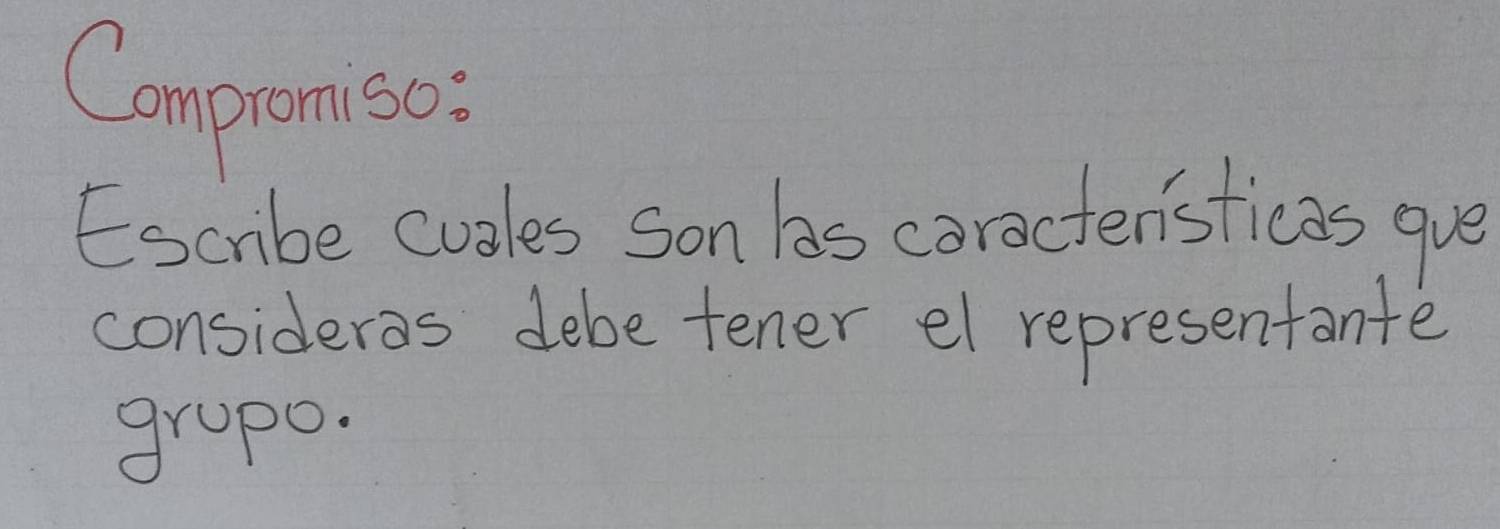 Compromiso:
Escribe cuales son las características que
consideras debe tener el representante
grupo.